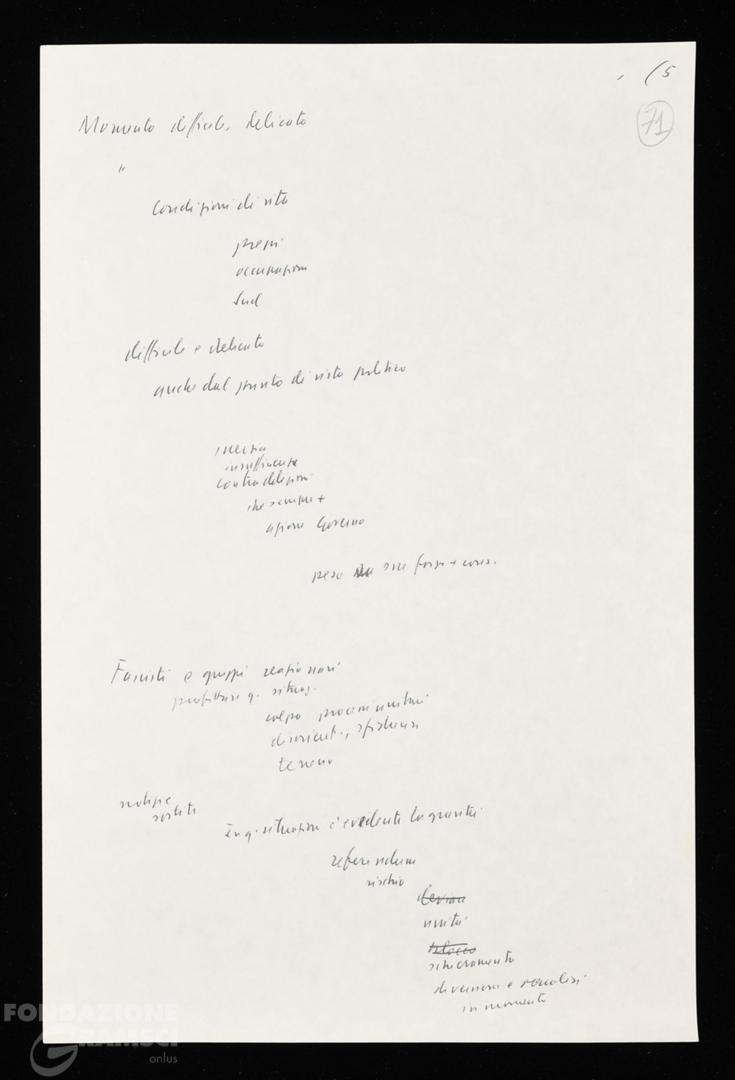 (5
71
Momento difficile, delicato
"
Condizioni di vita
prezzi
occupazione
Sud
difficile e delicato
anche dal punto di vista politico
inerzia
insufficienze
contraddizioni
che sempre +
azione Governo
peso sue forze + cons.
Fascisti e gruppi reazionari
profittare q. situaz.
colpo processo unitari
disorient., sfiducia
terreno
notizie
In q. situazione è evidente la gravità
referendum
rischio
unità
blocco
schieramento
divisione e paralisi
in momento
FONDAZIONE
GRAMSCI
onlus